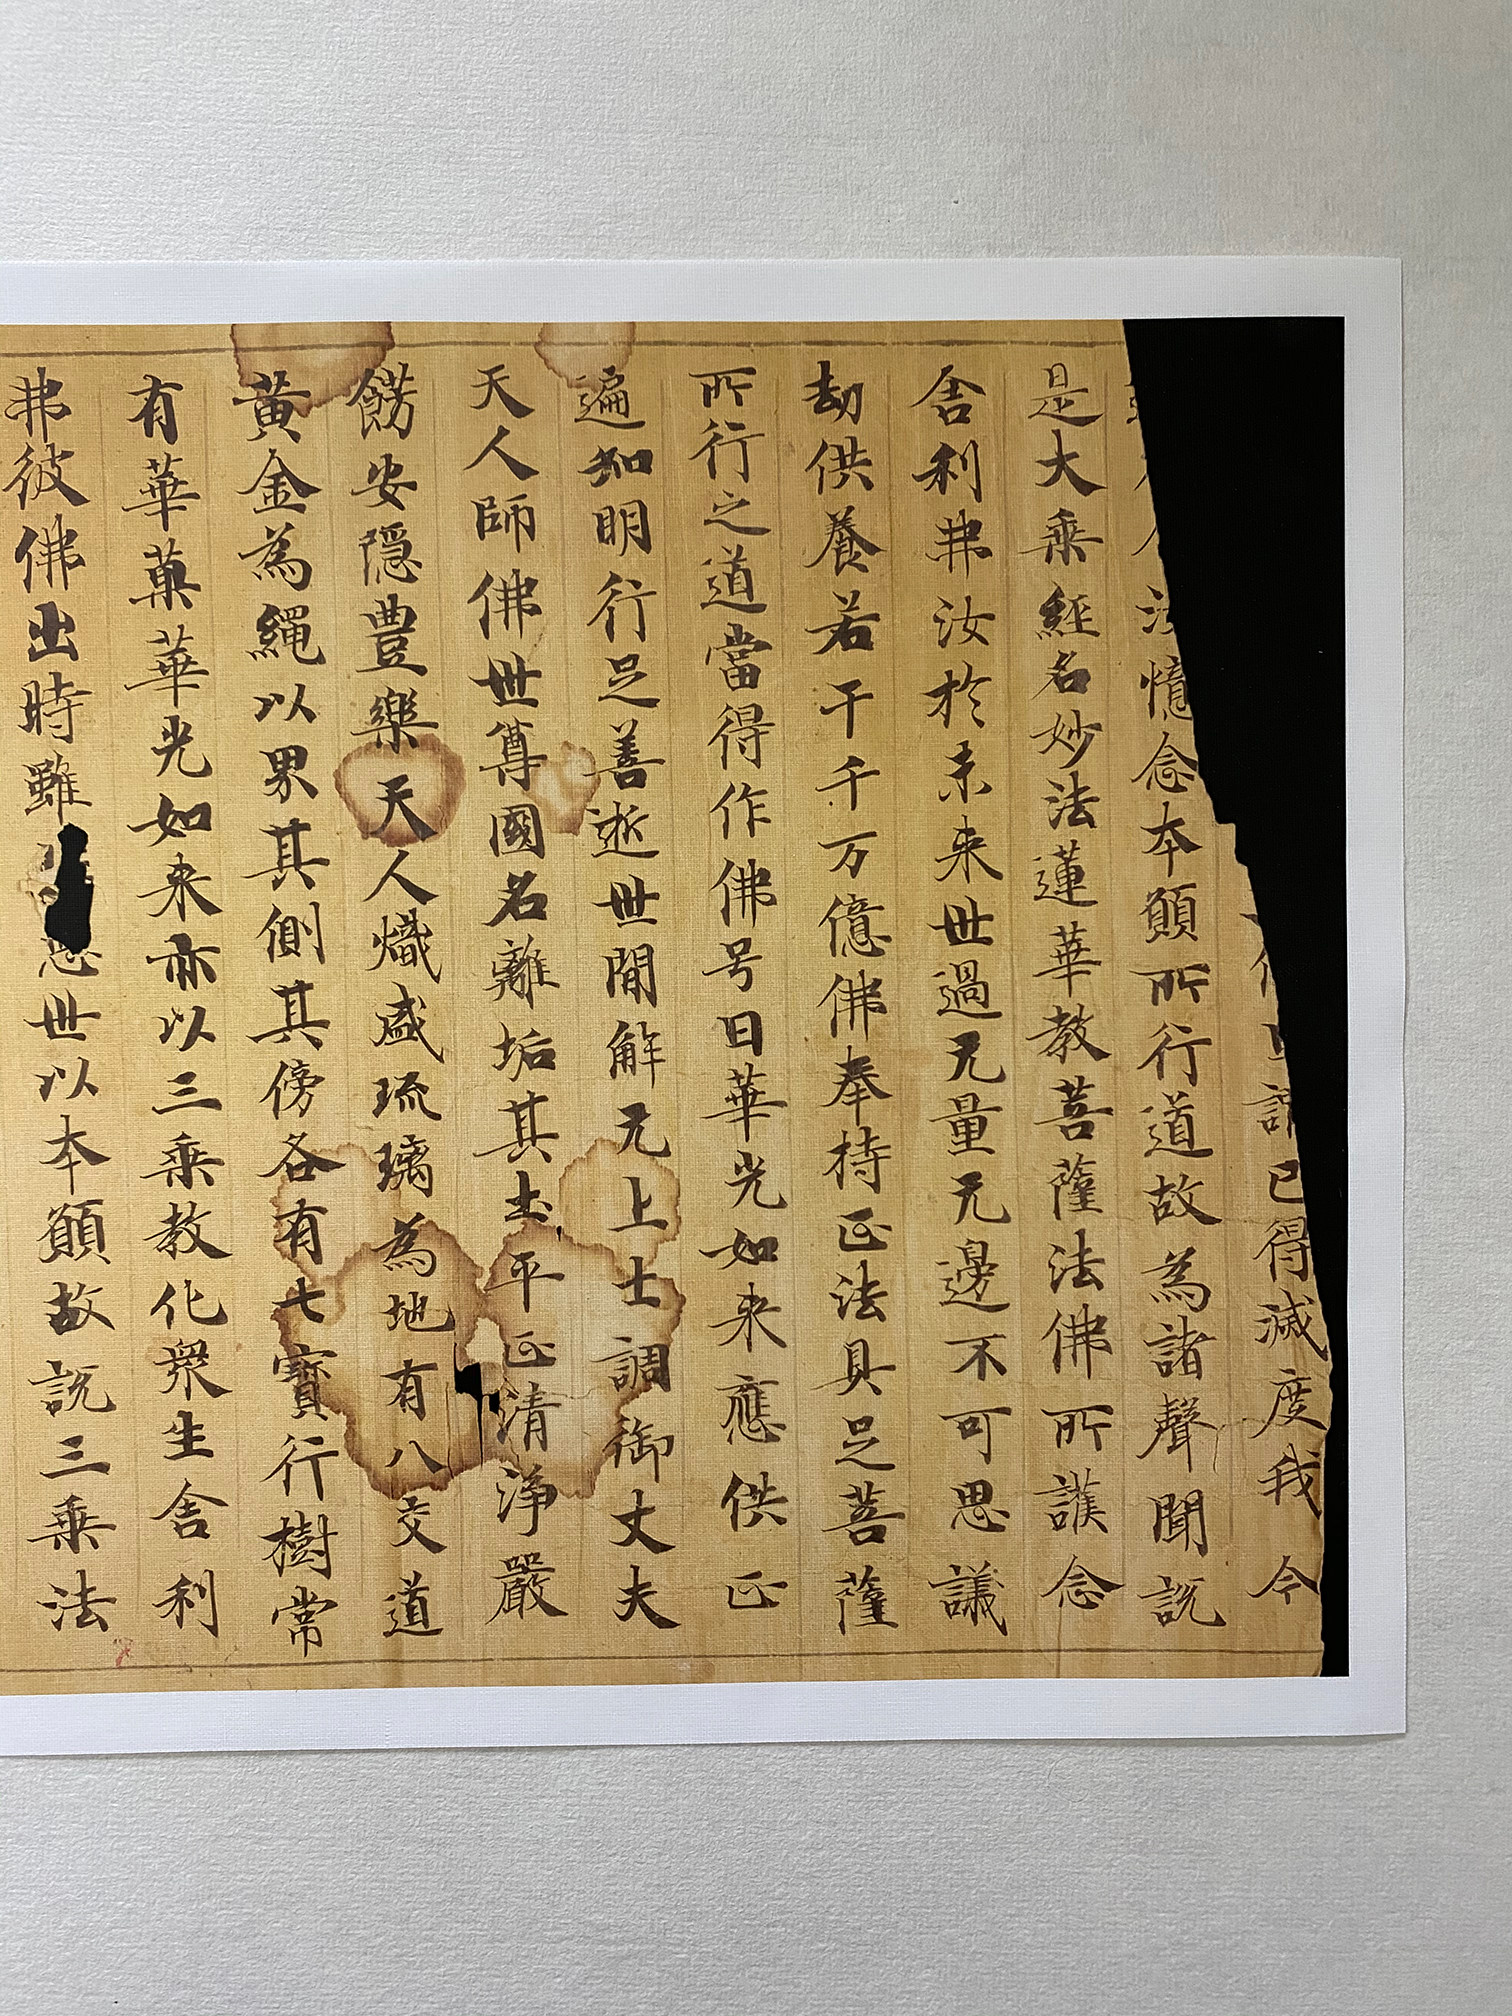 已得滅度我今
憶念本願所行道故為諸聲聞說
是大乘經名妙法蓮華教菩薩法佛所護念
舍利弗汝於未来世過无量无邊不可思議
劫供養若干千万億佛奉持正法具足菩薩
所行之道當得作佛号曰華光如来應供正
遍知明行足善逝世間解无上士調御丈夫
天人師佛世尊國名離垢其土平正清淨嚴
餝安隱豊樂天人熾盛琉璃為地有八交道
黃金為繩以界其側其傍各有七寶行樹常
有華菓華光如来亦以三乘教化衆生舍利
弗彼佛出時雖惡世以本願故說三乘法